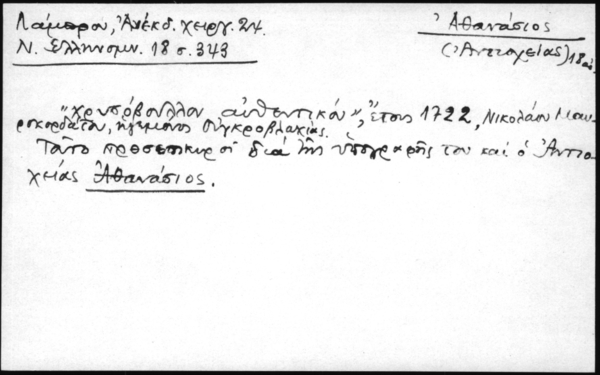 Λάμπρου, Ἀνέκδ. χειργ. 24.
Ν. Ἑλληνομν. 18 σ. 343
Ἀθανάσιος
(Ἀντιοχείας) 18 αἰ.
"χρυσόβουλλον αὐθεντικόν", ἔτους 1722, Νικολάου Μαυ-
ροκορδάτου, ἡγεμόνος Οὐγκροβλαχίας.
Τοῦτο προσεπικυροῖ διὰ τῆς ὑπογραφῆς του καὶ ὁ Ἀντιο-
χείας Ἀθανάσιος.